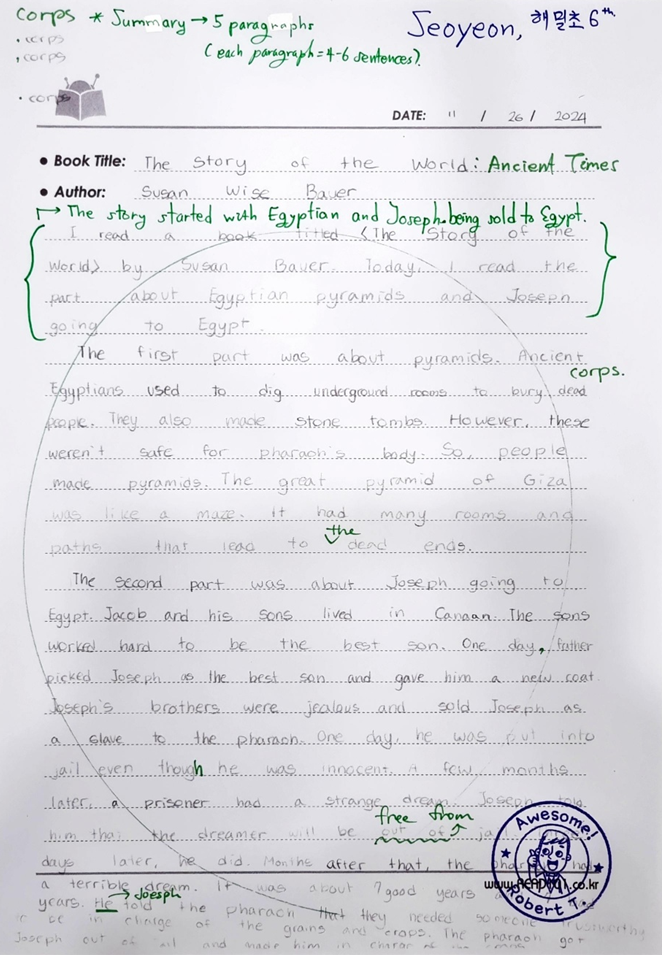 corps * Summary → 5 paragraphs
Seoyeon, 해밀초 6th
• corps
• corps
(each paragraph = 4-6 sentences).
• corps
DATE: 11 / 26 / 2024
• Book Title: The Story of the World: Ancient Times
• Author: Susan Wise Bauer
→ The story started with Egyptian and Joseph being sold to Egypt.
I read a book titled <The Story of the
World> by Susan Bauer. Today, I read the
part about Egyptian pyramids and Joseph
going to Egypt.
The first part was about pyramids. Ancient
corps.
Egyptians used to dig underground rooms to bury dead
people. They also made stone tombs. However, these
weren't safe for pharaoh's body. So, people
made pyramids. The great pyramid of Giza
was like a maze. It had many rooms and
the
paths that lead to dead ends.
The second part was about Joseph going to
Egypt. Jacob and his sons lived in Canaan. The sons
worked hard to be the best son. One day, father
picked Joseph as the best son and gave him a new coat.
Joseph's brothers were jealous and sold Joseph as
a slave to the pharaoh. One day, he was put into
jail even though he was innocent. A few months
later, a prisoner had a strange dream. Joseph told
free from
him that the dreamer will be out of
days later, he did. Months after that, the
a terrible dream. It was about 7 good years
→ Joesph
years. He told the pharaoh that they needed someone trustworthy
to be in charge of the grains and crops. The pharaoh got
Joseph out of jail and made him in charge of
Awesome!
www.READ101.co.kr
Robert T.